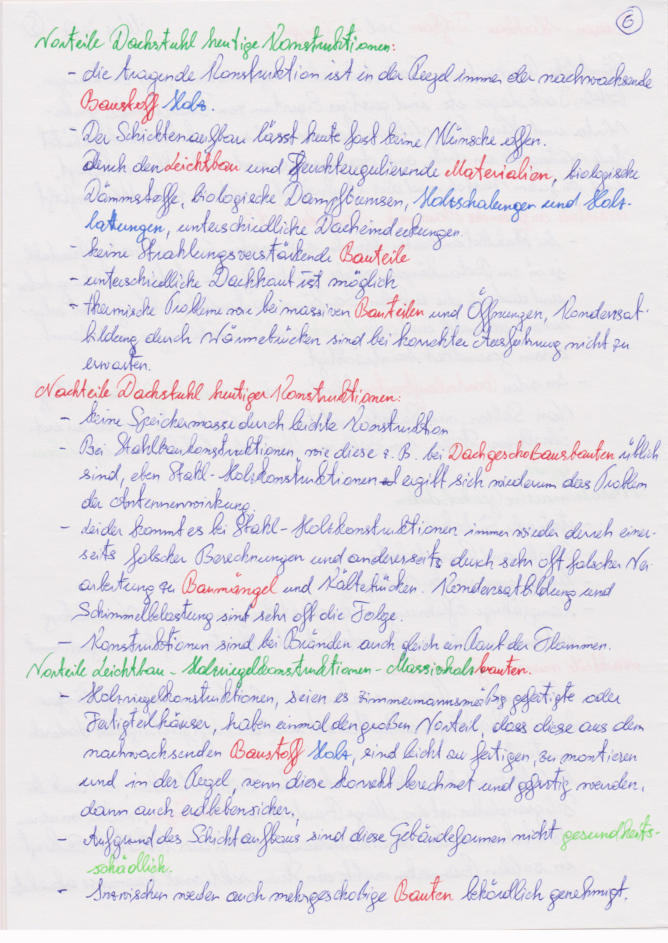 6
Vorteile Dachstuhl heutige Konstruktionen:
- die tragende Konstruktion ist in der Regel immer der nachwachsende
Baustoff Holz.
- Der Schichtenaufbau lässt heute fast keine Wünsche offen.
durch den Leichtbau und Feuchteregulierende Materialien, biologische
Dämmstoffe, biologische Dampfbremsen, Holzschalungen und Holz-
lattungen, unterschiedliche Dacheindeckungen.
- keine Strahlungsverstärkende Bauteile
- unterschiedliche Dachhaut ist möglich
- thermische Probleme wie bei massiven Bauteilen und Öffnungen, Kondensat-
bildung durch Wärmebrücken sind bei korrekter Ausführung nicht zu
erwarten.
Nachteile Dachstuhl heutiger Konstruktionen:
- keine Speichermasse durch leichte Konstruktion
- Bei Stahlbaukonstruktionen, wie diese z. B. bei Dachgeschoßausbauten üblich
sind, eben Stahl-Holzkonstruktionen ergibt sich wiederum das Problem
der Antennenwirkung.
- Leider kommt es bei Stahl-Holzkonstruktionen immer wieder durch einer-
seits falscher Berechnungen und andererseits durch sehr oft falscher Ver-
arbeitung zu Baumängel und Kältebrücken. Kondensatbildung und
Schimmelbelastung sind sehr oft die Folge.
- Konstruktionen sind bei Bränden auch gleich ein Raub der Flammen.
Vorteile Leichtbau - Holzriegelkonstruktionen - Massivholzbauten.
- Holzriegelkonstruktionen, seien es zimmermannsmäßig gefertigte oder
Fertigteilhäuser, haben einmal den großen Vorteil, dass diese aus dem
nachwachsenden Baustoff Holz, sind leicht zu fertigen, zu montieren
und in der Regel, wenn diese korrekt berechnet und gefertig werden,
dann auch erdbebensicher.
- Aufgrund des Schichtaufbaus sind diese Gebäudeformen nicht gesundheits-
schädlich.
- Inzwischen werden auch mehrgeschoßige Bauten behördlich genehmigt.